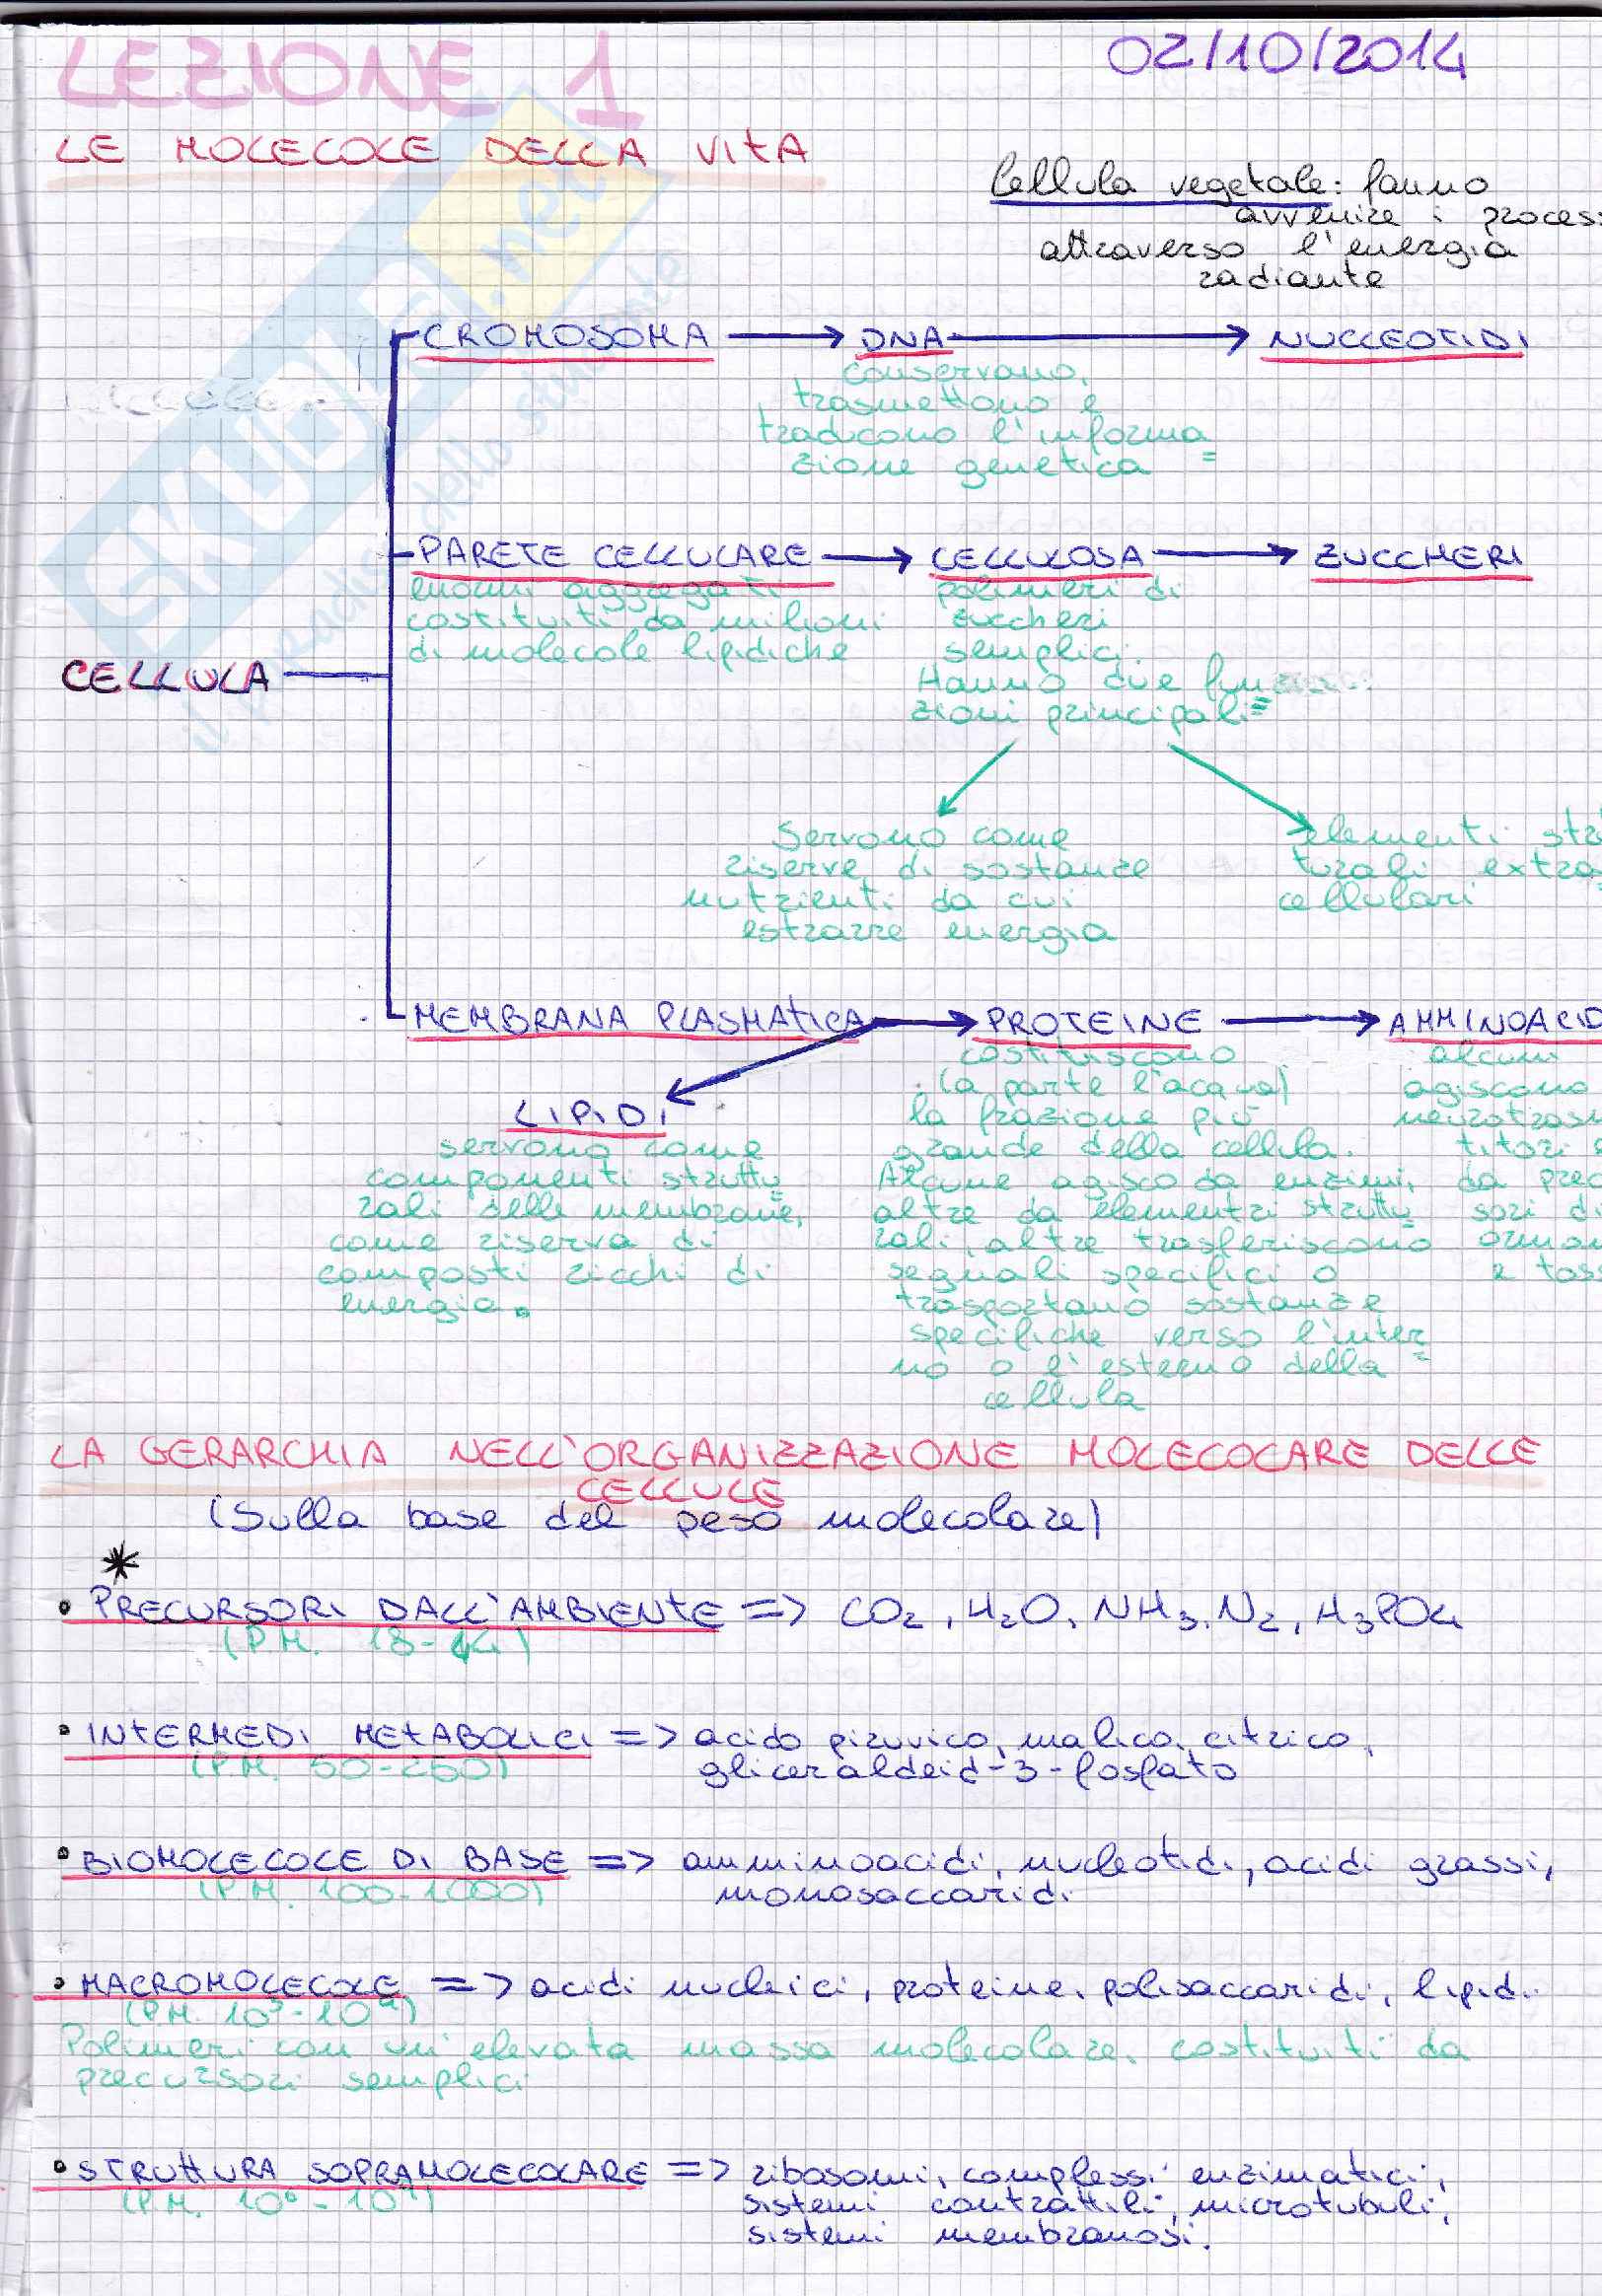 LEZIONE 1
02/10/2014
LE MOLECOLE DELLA VITA
Cellula vegetale: fanno
avvenire i process
attraverso l'energia
radiante
CROMOSOMA → DNA → NUCLEOTIDI
conservano,
trasmettono e
traducono l'informa=
zione genetica
PARETE CELLULARE → CELLULOSA → ZUCCHERI
enormi aggregati
costituiti da milioni
di molecole lipidiche
polimeri di
zuccheri
semplici.
Hanno due fun=
zioni principali
CELLULA
Servono come
riserve di sostanze
nutrienti da cui
estrarre energia
elementi str
turali extra
cellulari
MEMBRANA PLASMATICA → PROTEINE → AMMINOACID
costituiscono
(a parte l'acqua)
la frazione più
grande della cellula.
Alcune agisco da enzimi,
altre da elementri struttu=
rali, altre trasferiscono
segnali specifici o
trasportano sostanze
specifiche verso l'inter=
no o l'esterno della
cellula
alcuni
agiscono
neurotrasm
titori
da prec
sori di
ormon
e toss
LIPIDI
servono come
componenti struttu=
rali delle membrane,
come riserva di
composti ricchi di
energia.
LA GERARCHIA NELL'ORGANIZZAZIONE MOLECOLARE DELLE
CELLULE
(Sulla base del peso molecolare)
*
• PRECURSORI DALL'AMBIENTE => CO2, H2O, NH3, N2, H3PO4
(P.M. 18-44)
• INTERMEDI METABOLICI => acido piruvico, malico, citrico,
(P.M. 50-250) gliceraldeid-3-fosfato
• BIOMOLECOLE DI BASE => amminoacidi, nucleotidi, acidi grassi,
(P.M. 100-1000) monosaccaridi
• MACROMOLECOLE => acidi nucleici, proteine, polisaccaridi, lipidi
(P.M. 10³-10⁹)
Polimeri con un'elevata massa molecolare, costituiti da
precursori semplici
• STRUTTURA SOPRAMOLECOLARE => ribosomi, complessi enzimatici,
(P.M. 10⁶-10⁹) sistemi contrattili, microtubuli,
sistemi membranosi.
SKUOLA.net
il paradiso dello studente